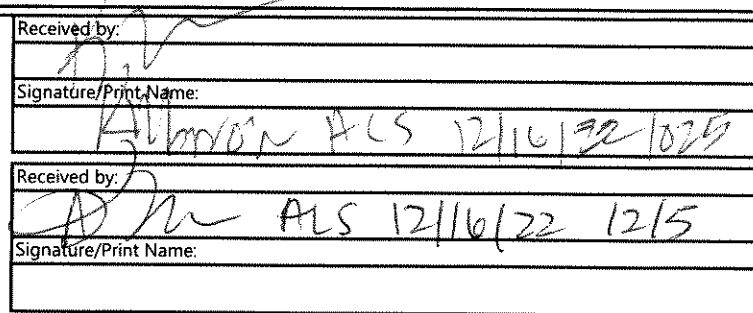 Received by:
Signature/Print Name:
ALS 12/16/22 1025
Received by:
ALS 12/16/22 1215
Signature/Print Name: